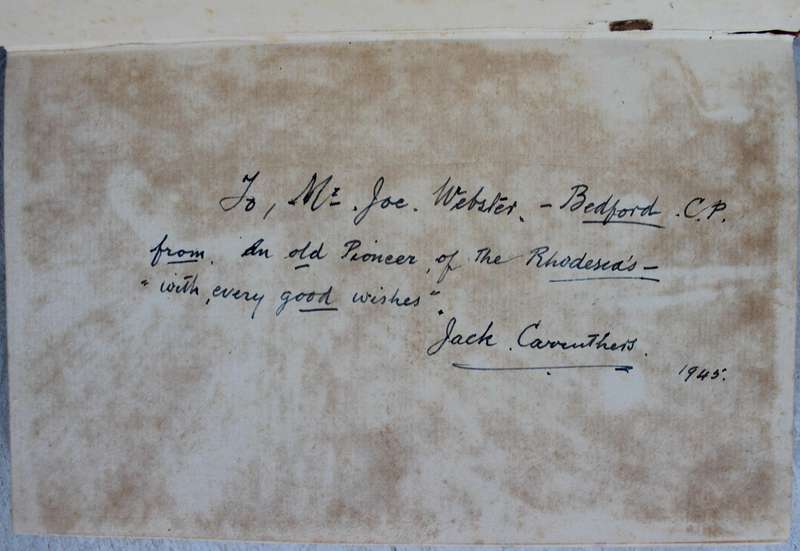 To, Mr. Joe. Webster. - Bedford. C.P.
from. An old Pioneer, of the Rhodesea's -
"with, every good wishes".
Jack. Carruthers.
1945.